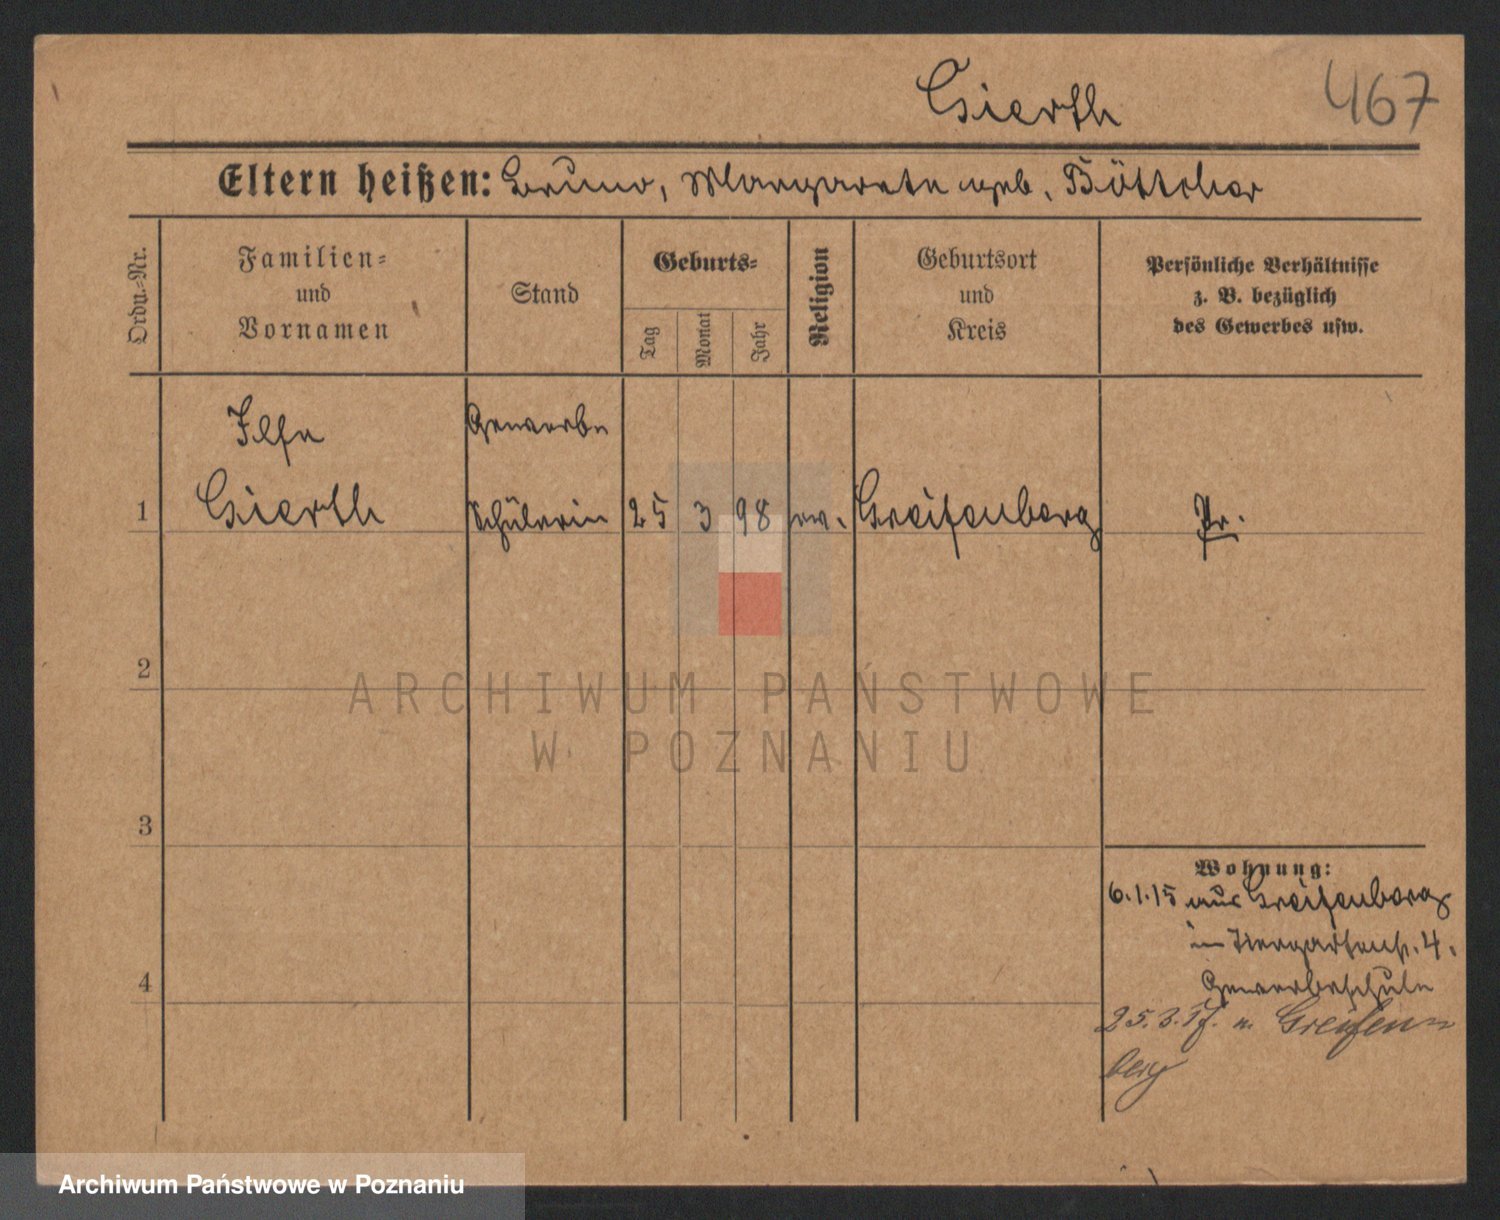 Gierth
467
Eltern heißen: Bruno, Margarete geb. Böttcher
Ordn.-Nr.
Familien-
und
Vornamen
Stand
Geburts-
Tag
Monat
Jahr
Religion
Geburtsort
und
Kreis
Persönliche Verhältnisse
z. B. bezüglich
des Gewerbes usw.
Ilse
Gewerbe
1
Gierth
Schülerin
25
3
98
ev.
Greifenberg
Pr.
2
ARCHIWUM PAŃSTWOWE
W POZNANIU
3
Wohnung:
6.1.15 aus Greifenberg
in Tiergartenstr. 4.
4
Gewerbeschule
25.3. n. Greifen-
berg
Archiwum Państwowe w Poznaniu